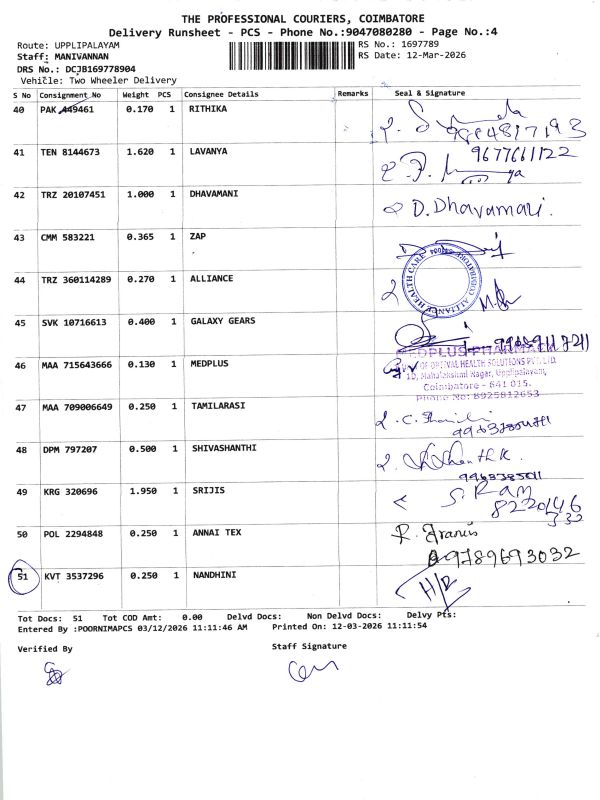 THE PROFESSIONAL COURIERS, COIMBATORE
Delivery Runsheet - PCS - Phone No.:9047080280 - Page No.:4
Route: UPPLIPALAYAM
RS No.: 1697789
Staff: MANIVANNAN
RS Date: 12-Mar-2026
DRS No.: DCJB169778904
Vehicle: Two Wheeler Delivery
S No Consignment No Weight PCS Consignee Details Remarks Seal & Signature
40 PAK 449461 0.170 1 RITHIKA
41 TEN 8144673 1.620 1 LAVANYA 9677661122
42 TRZ 20107451 1.000 1 DHAVAMANI D. Dhavamani.
43 CMM 583221 0.365 1 ZAP
44 TRZ 360114289 0.270 1 ALLIANCE
ALLIANCE HEALTH CARE COIMBATORE
45 SVK 10716613 0.400 1 GALAXY GEARS
46 MAA 715643666 0.130 1 MEDPLUS
MEDPLUS PHARMA
OF OPTIVAL HEALTH SOLUTIONS PVT. LTD.
10, Mahalakshmi Nagar, Upplipalayam,
Coimbatore - 641 015.
Phone No: 8925812653
47 MAA 709006649 0.250 1 TAMILARASI
48 DPM 797207 0.500 1 SHIVASHANTHI
49 KRG 320696 1.950 1 SRIJIS S. Ram
8220146
332
50 POL 2294848 0.250 1 ANNAI TEX
9789693032
51 KVT 3537296 0.250 1 NANDHINI H/R
Tot Docs: 51 Tot COD Amt: 0.00 Delvd Docs: Non Delvd Docs: Delvy Pts:
Entered By :POORNIMAPCS 03/12/2026 11:11:46 AM Printed On: 12-03-2026 11:11:54
Verified By
Staff Signature